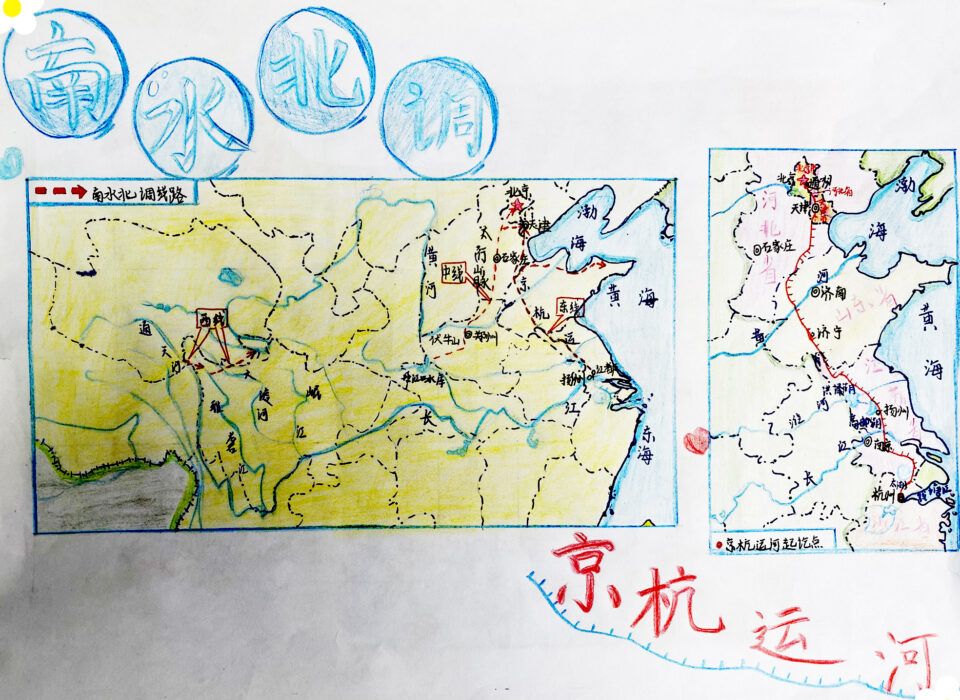 南水北调
南水北调线路
北京
天津
渤
海
太
行
山
脉
石家庄
黄
河
中线
京
杭
运
东线
黄
海
伏牛山
郑州
西线
通
天
河
雅
砻
江
岷
江
扬州
长
江
东
海
北京
天津
渤
海
河
北
省
石家庄
河
济南
山东省
黄
黄
海
济宁
淮
河
扬州
高邮湖
江
南京
长
太湖
杭州
京杭运河起讫点
京杭运河